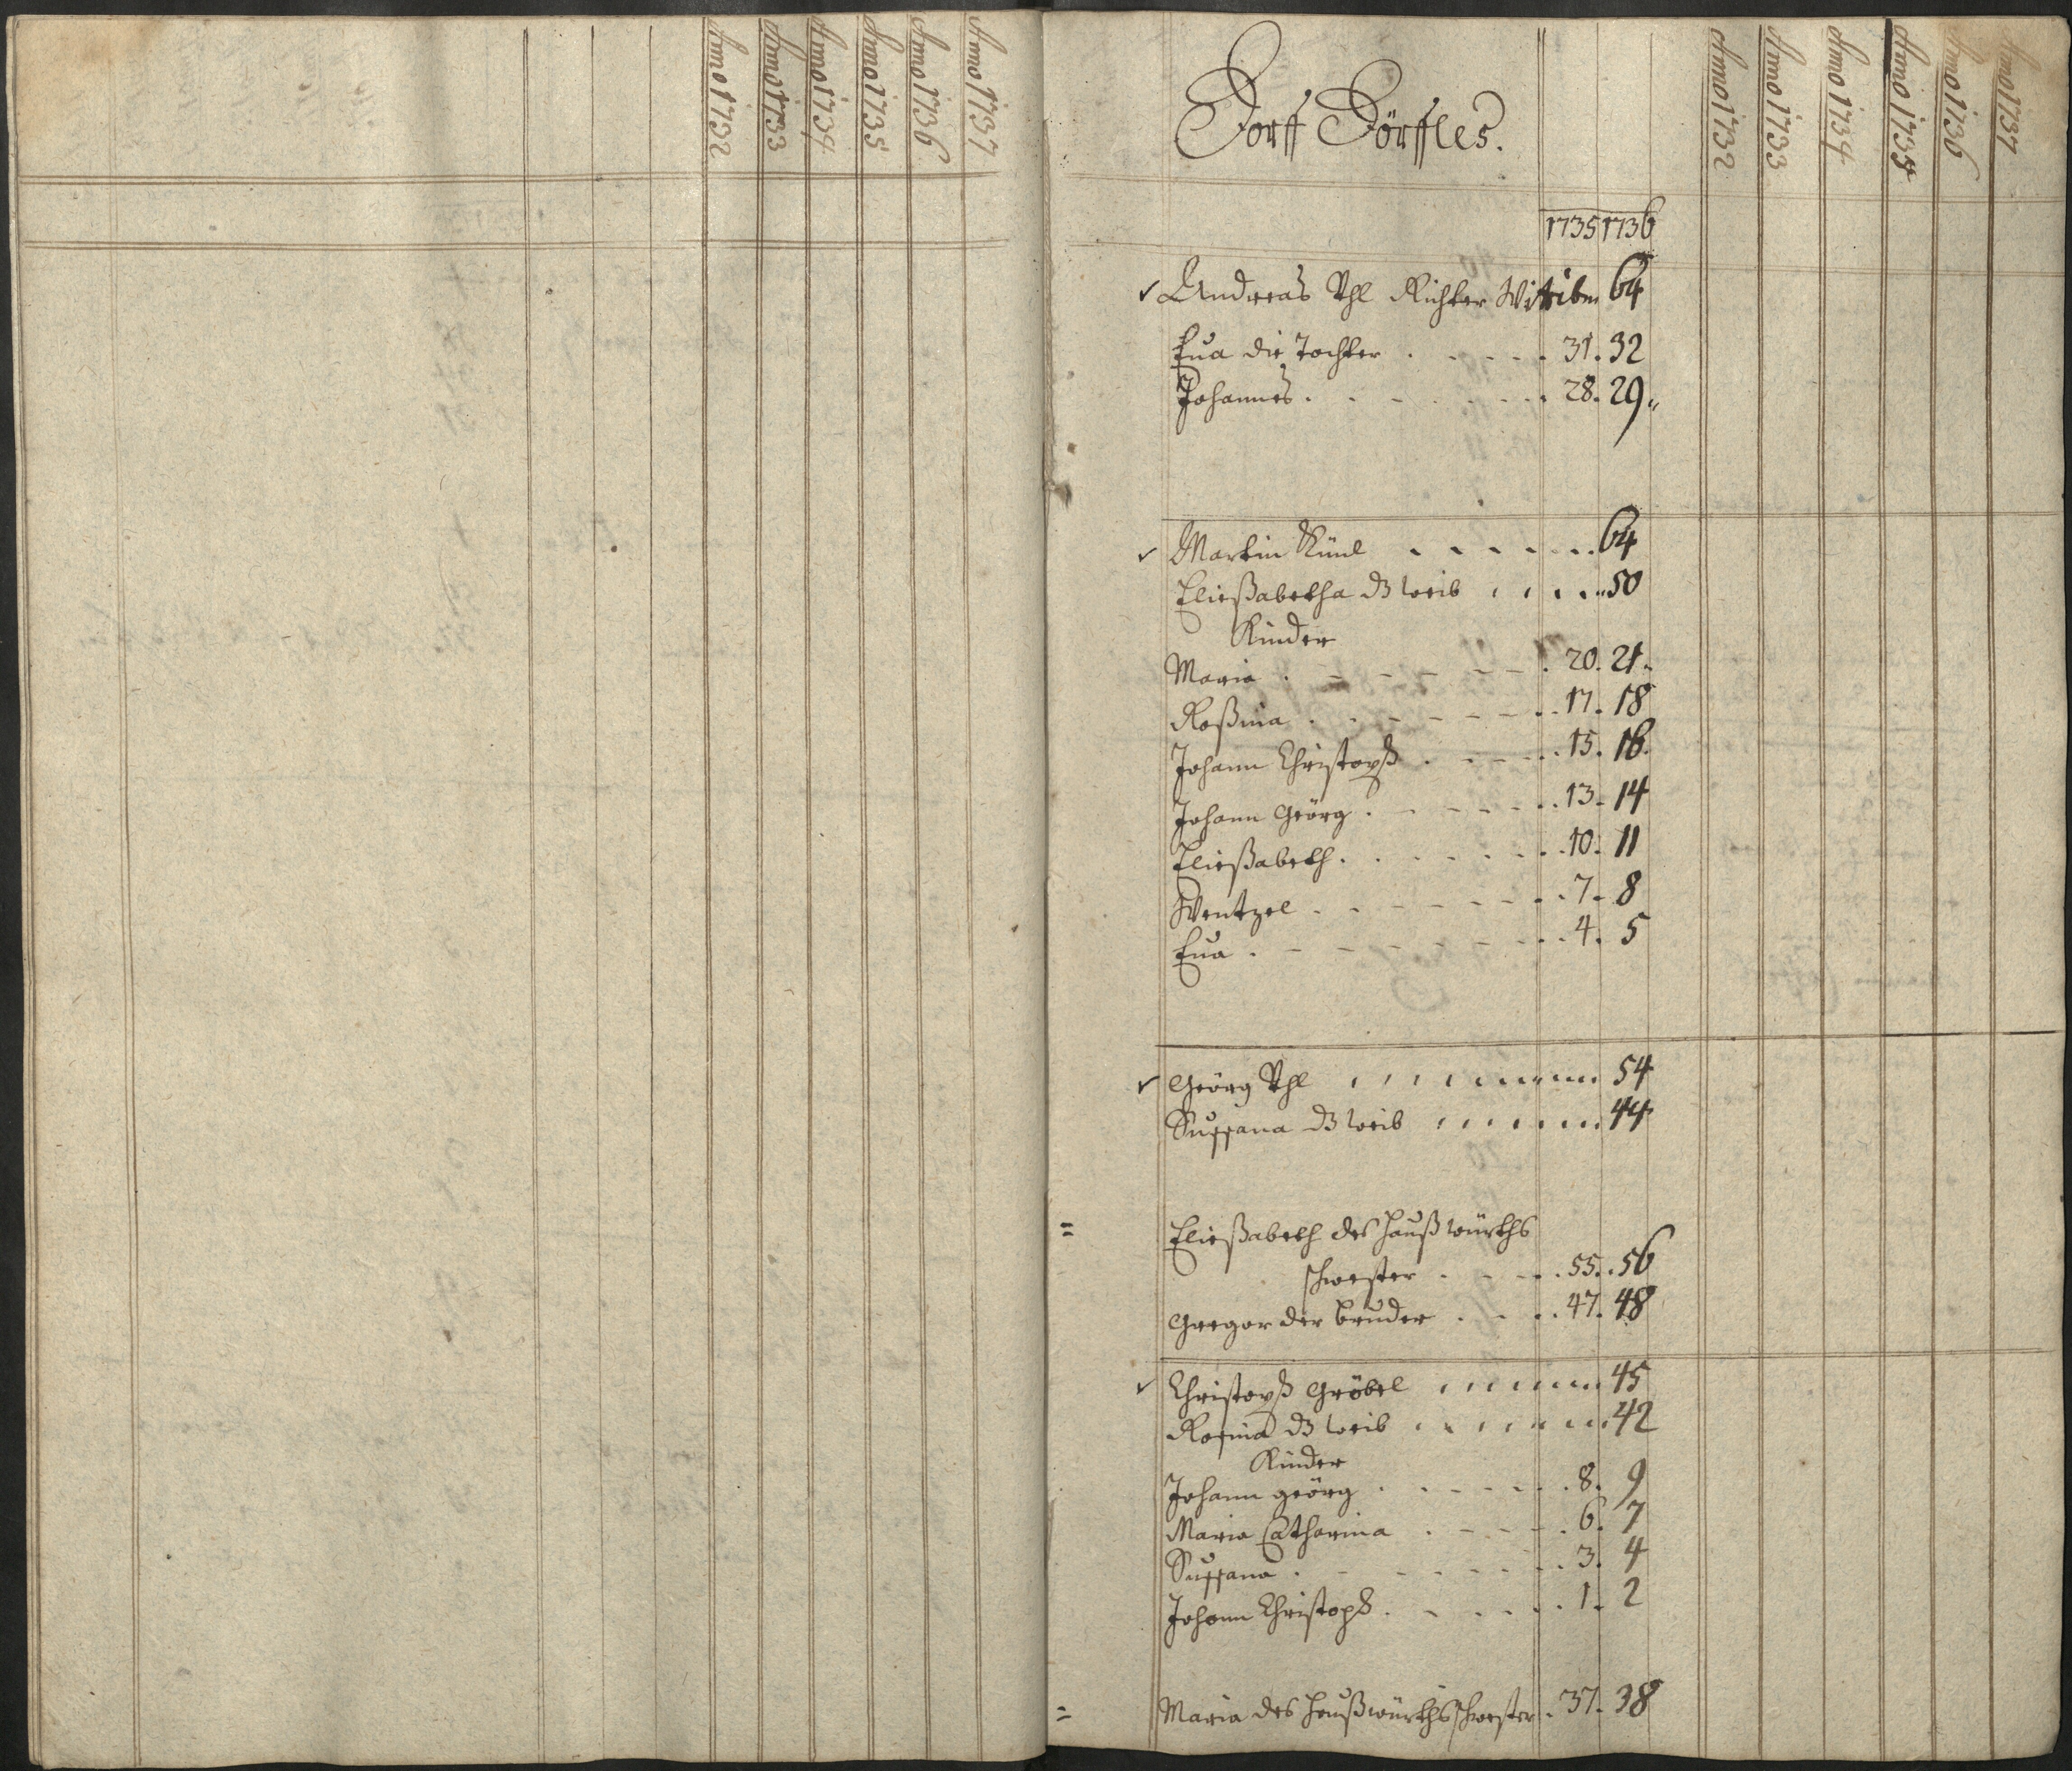 Anno 1732
Anno 1733
Anno 1734
Anno 1735
Anno 1736
Anno 1737
Dorff Dörffles.
Anno 1732
Anno 1733
Anno 1734
Anno 1735
Anno 1736
Anno 1737
1735 1736
Andreas Vhl Richter Wittiber 64
Eua die Tochter . . . . . 31. 32
Johannes . . . . . . 28. 29
Martin Künl . . . . . . . 64
Eließabetha ds weib . . . . . 50
Kinder
Maria . . . . . . 20. 21.
Roßina . . . . . . . 17. 18
Johann Christoph . . . . . 15. 16.
Johann Geörg . . . . . . 13. 14
Eließabeth . . . . . . . 10. 11
Wentzel . . . . . . . 7. 8
Eua . . . . . . . . 4. 5
Geörg Vhl . . . . . . . 54
Sussana ds weib . . . . . . 44
Eließabeth des Haußwürths
schwester . . . . . 55. 56
Gregor der bruder . . . . 47. 48
Christoph Gröbel . . . . . . 45
Rosina ds weib . . . . . . 42
Kinder
Johann geörg . . . . . . 8. 9
Maria Catharina . . . . . 6. 7
Sussana . . . . . . . 3. 4
Johann Christoph . . . . . . 1. 2
Maria des Haußwürths schwester . 37. 38